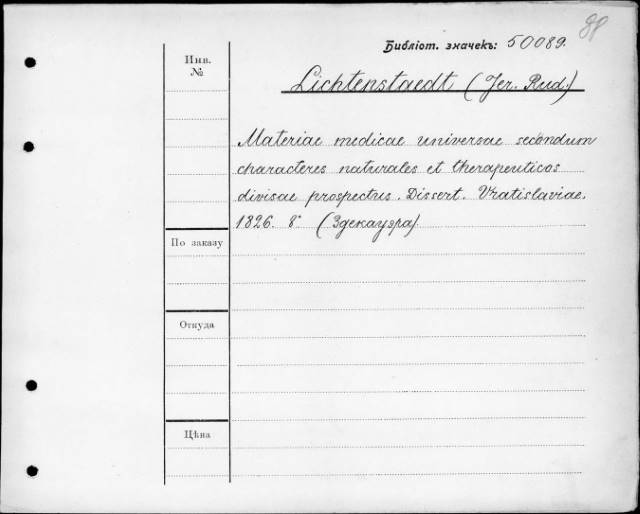 88
Библіот. значекъ: 50089.
Инв.
№
Lichtenstaedt (Jer. Rud.)
Materiae medicae universae secundum
characteres naturales et therapeuticos
divisae prospectus. Dissert. Vratislaviae.
1826. 8° (Здекауэра)
По заказу
Откуда
Цѣна